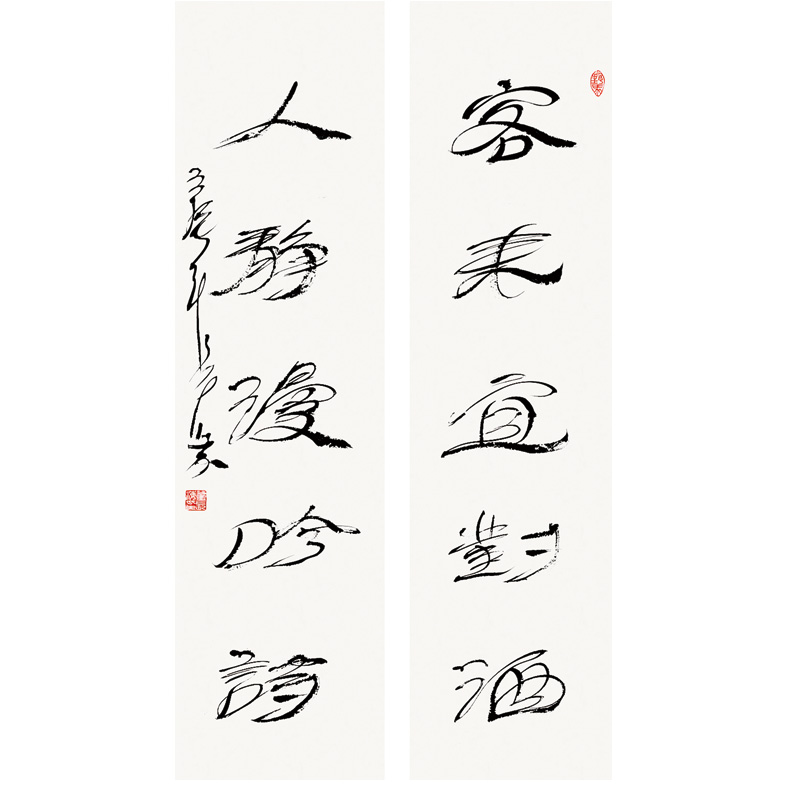 客来宜對酒
人靜漫吟詩